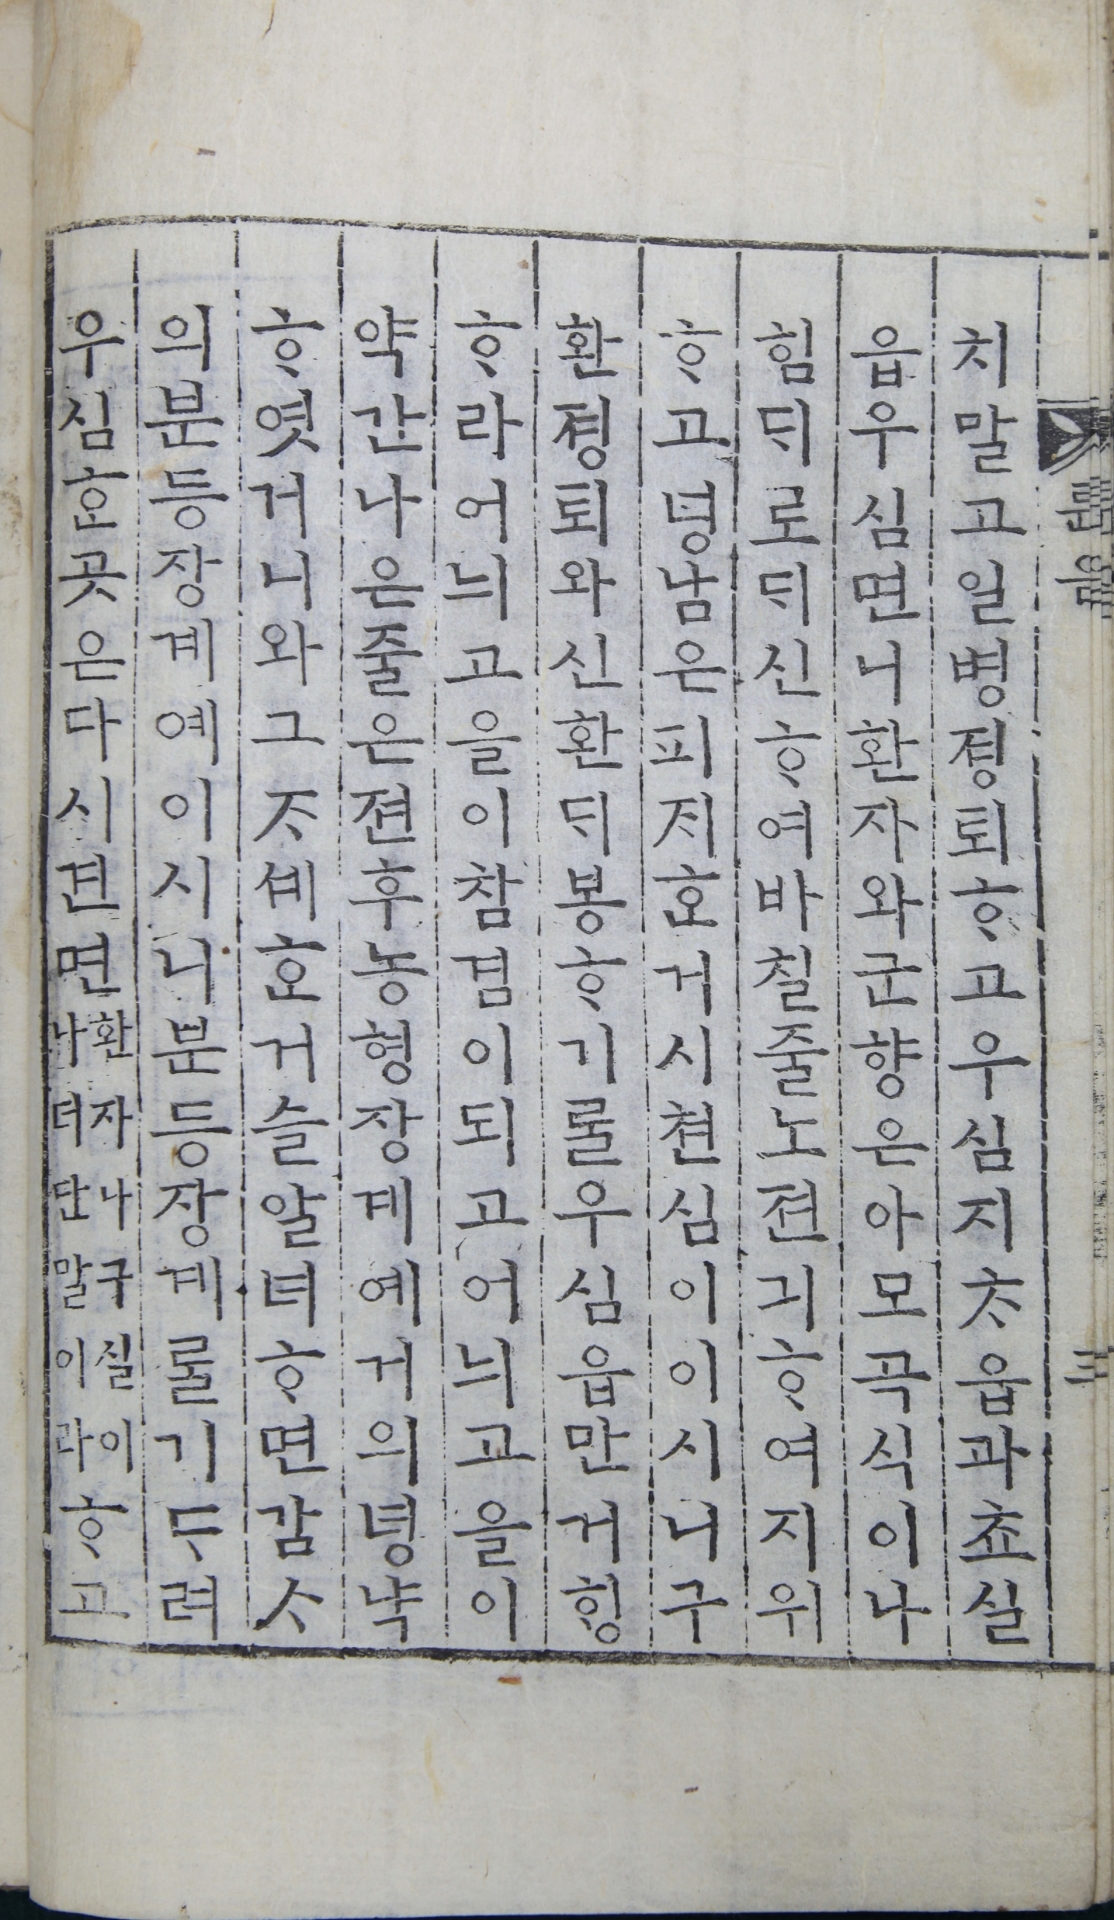 치말고일병졍퇴ᄒᆞ고우심지ᄎᆞ읍과쵸실
읍우심면니환자와군향은아모곡식이나
힘ᄃᆡ로ᄃᆡ신ᄒᆞ여바칠줄노젼긔ᄒᆞ여지위
ᄒᆞ고녕남은피ᄌᆡᄒᆞᆫ거시쳔심이이시니구
환졍퇴와신환ᄃᆡ봉ᄒᆞ기룰우심읍만거ᄒᆡᆼ
ᄒᆞ라어늬고을이참겸이되고어늬고을이
약간나은줄은젼후농형장계예거의녕냑
ᄒᆞ엿거니와그ᄌᆞ셰ᄒᆞᆫ거슬알녀ᄒᆞ면감ᄉᆞ
의분등장계예이시니분등장계룰기ᄃᆞ려
우심ᄒᆞᆫ곳은다시견면환자나구실이나더단말이라ᄒᆞ고
륜음
三